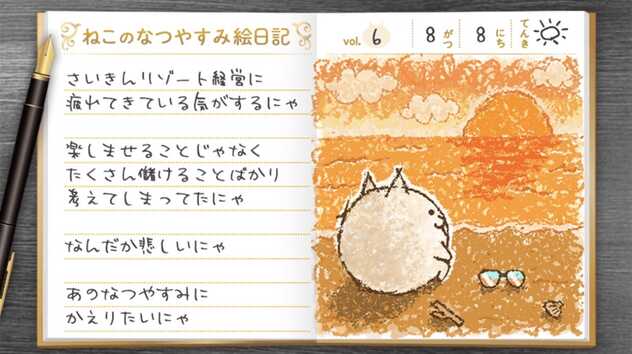 ねこのなつやすみ絵日記
vol. 6
8がつ 8にち てんき
さいきんリゾート経営に
疲れてきている気がするにゃ
楽しませることじゃなく
たくさん儲けることばかり
考えてしまってたにゃ
なんだか悲しいにゃ
あのなつやすみに
かえりたいにゃ